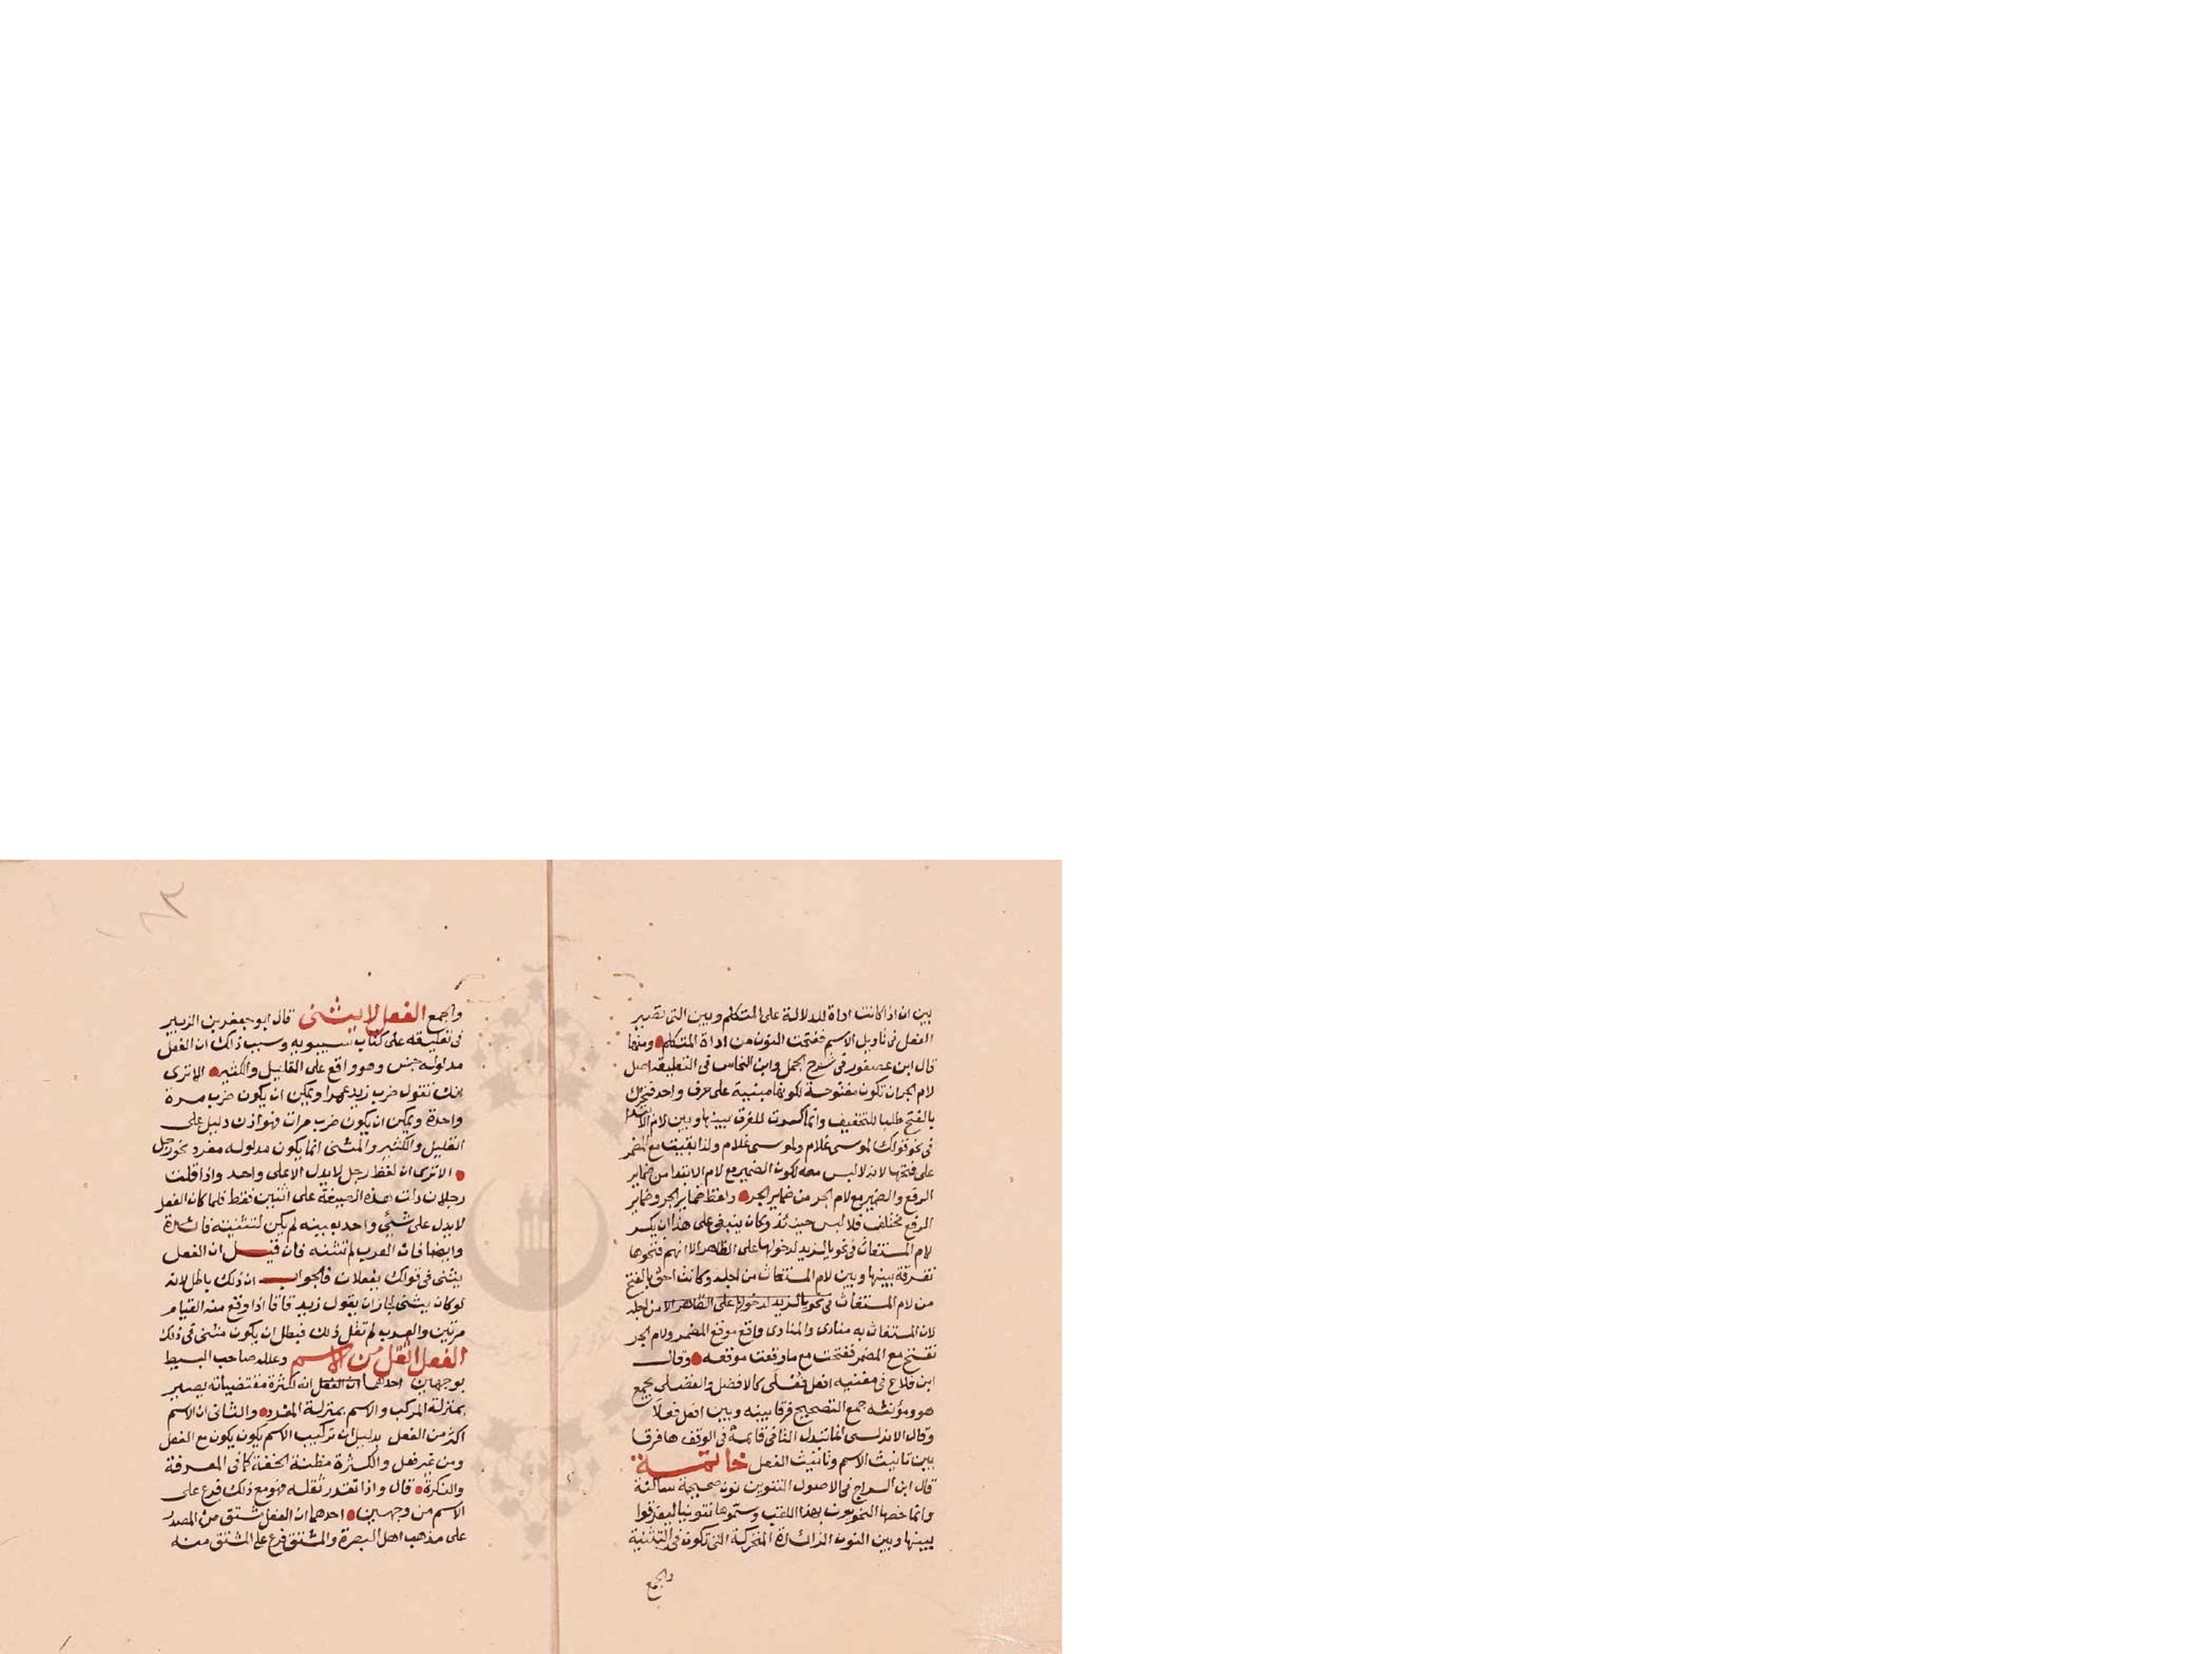 بين ان اذا كانت اداة للدلالة على المتكلم وبين التى تصير
الفعل فى تاويل الاسم ففتحت النون من اداة المتكلم ومنها
قال ابن عصفور فى شرح الجمل وابن النحاس فى التعليقة اصل
لام الجر ان تكون مفتوحة لكونها مبنية على حرف واحد فتحرك
بالفتح طلبا للتخفيف وانما كسرت للفرق بينها وبين لام الابتدا
فى نحو قولك لموسى غلام ولموسى غلام ولذا بقيت مع المضمر
على فتحها لانه لا لبس معه لكون الضمير مع لام الابتدا من ضماير
الرفع والضمير مع لام الجر من ضماير الجر ولفظ ضماير الجر وضماير
الرفع مختلف فلا لبس حينئذ وكان ينبغى على هذا ان يكسر
لام المستغاث فى نحو يا لزيد لدخولها على الظاهر الا انهم فتحوها
تفرقة بينها وبين لام المستغاث من اجله وكانت احق بالفتح
من لام المستغاث فى نحو يا لزيد لدخولها على الظاهر الا من اجله
لان المستغاث به منادى والمنادى واقع موقع المضمر ولام الجر
تفتح مع المضمر ففتحت مع ما وقعت موقعه وقال
ابن فلاح فى مغنيه افعل فعلى كالافضل والفضلى يجمع
هو ومؤنثه جمع التصحيح فرقا بينه وبين افعل فعلا
وقال الاندلسى انما تبدل التا فى قايمة فى الوقف ها فرقا
بين تانيث الاسم وتانيث الفعل خاتمة
قال ابن السراج فى الاصول التنوين نون صحيحة ساكنة
وانما خصها النحويون بهذا اللقب وسموها تنوينا ليفرقوا
بينها وبين النون الزائدة المتحركة التى تكون فى التثنية
والجمع
واجمع الفعل لا يثنى قال ابو جعفر بن الزبير
فى تعليقه على كتاب سيبويه وسبب ذلك ان الفعل
مدلوله جنس وهو واقع على القليل والكثير الا ترى
انك تقول ضرب زيد عمرا ويمكن ان يكون ضرب مرة
واحدة ويمكن ان يكون ضرب مرات فهو اذن دليل على
القليل والكثير والمثنى انما يكون مدلوله مفرد نحو رجل
الا ترى ان لفظ رجل لا يدل الا على واحد واذا قلت
رجلان دلت هذه الصيغة على اثنين فقط فلما كان الفعل
لا يدل على شئ واحد بعينه لم يكن لتثنيته فائدة
وايضا فان العرب لم تثنه فان قيل ان الفعل
يثنى فى قولك يفعلان فالجواب ان ذلك باطل لانه
لو كان يثنى لجاز ان يقول زيد قاما اذا وقع منه القيام
مرتين والعرب لم تقل ذلك فبطل ان يكون مثنى فى ذلك
الفعل اثقل من الاسم وعلله صاحب البسيط
بوجهين احدهما ان الفعل انه لكثرة مقتضياته يصير
بمنزلة المركب والاسم بمنزلة المفرد والثانى ان الاسم
اكثر من الفعل بدليل ان تركيب الاسم يكون يكون مع الفعل
ومن غير فعل والكثرة مظنة الخفة كما فى المعرفة
والنكرة قال واذا تقدر ثقله فهو مع ذلك فرع على
الاسم من وجهين احدهما ان الفعل مشتق من المصدر
على مذهب اهل البصرة والمشتق فرع على المشتق منه